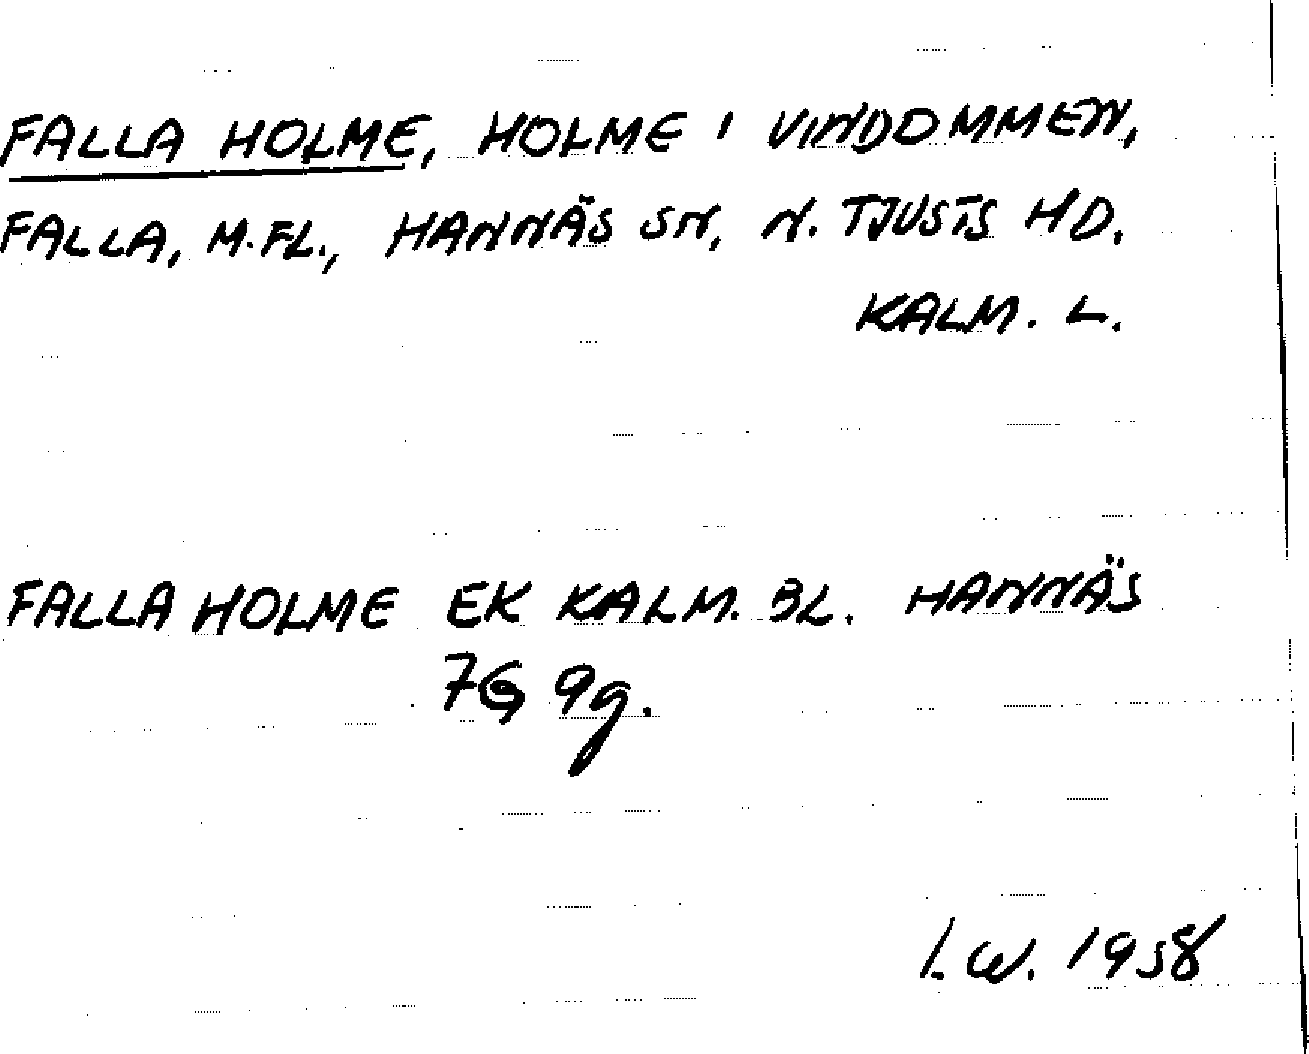 FALLA HOLME, HOLME I VINDOMMEN,
FALLA, M.FL., HANNÄS SN, N. TJUSTS HD.
KALM. L.
FALLA HOLME EK KALM. BL. HANNÄS
7G 9g.
I.W. 1958